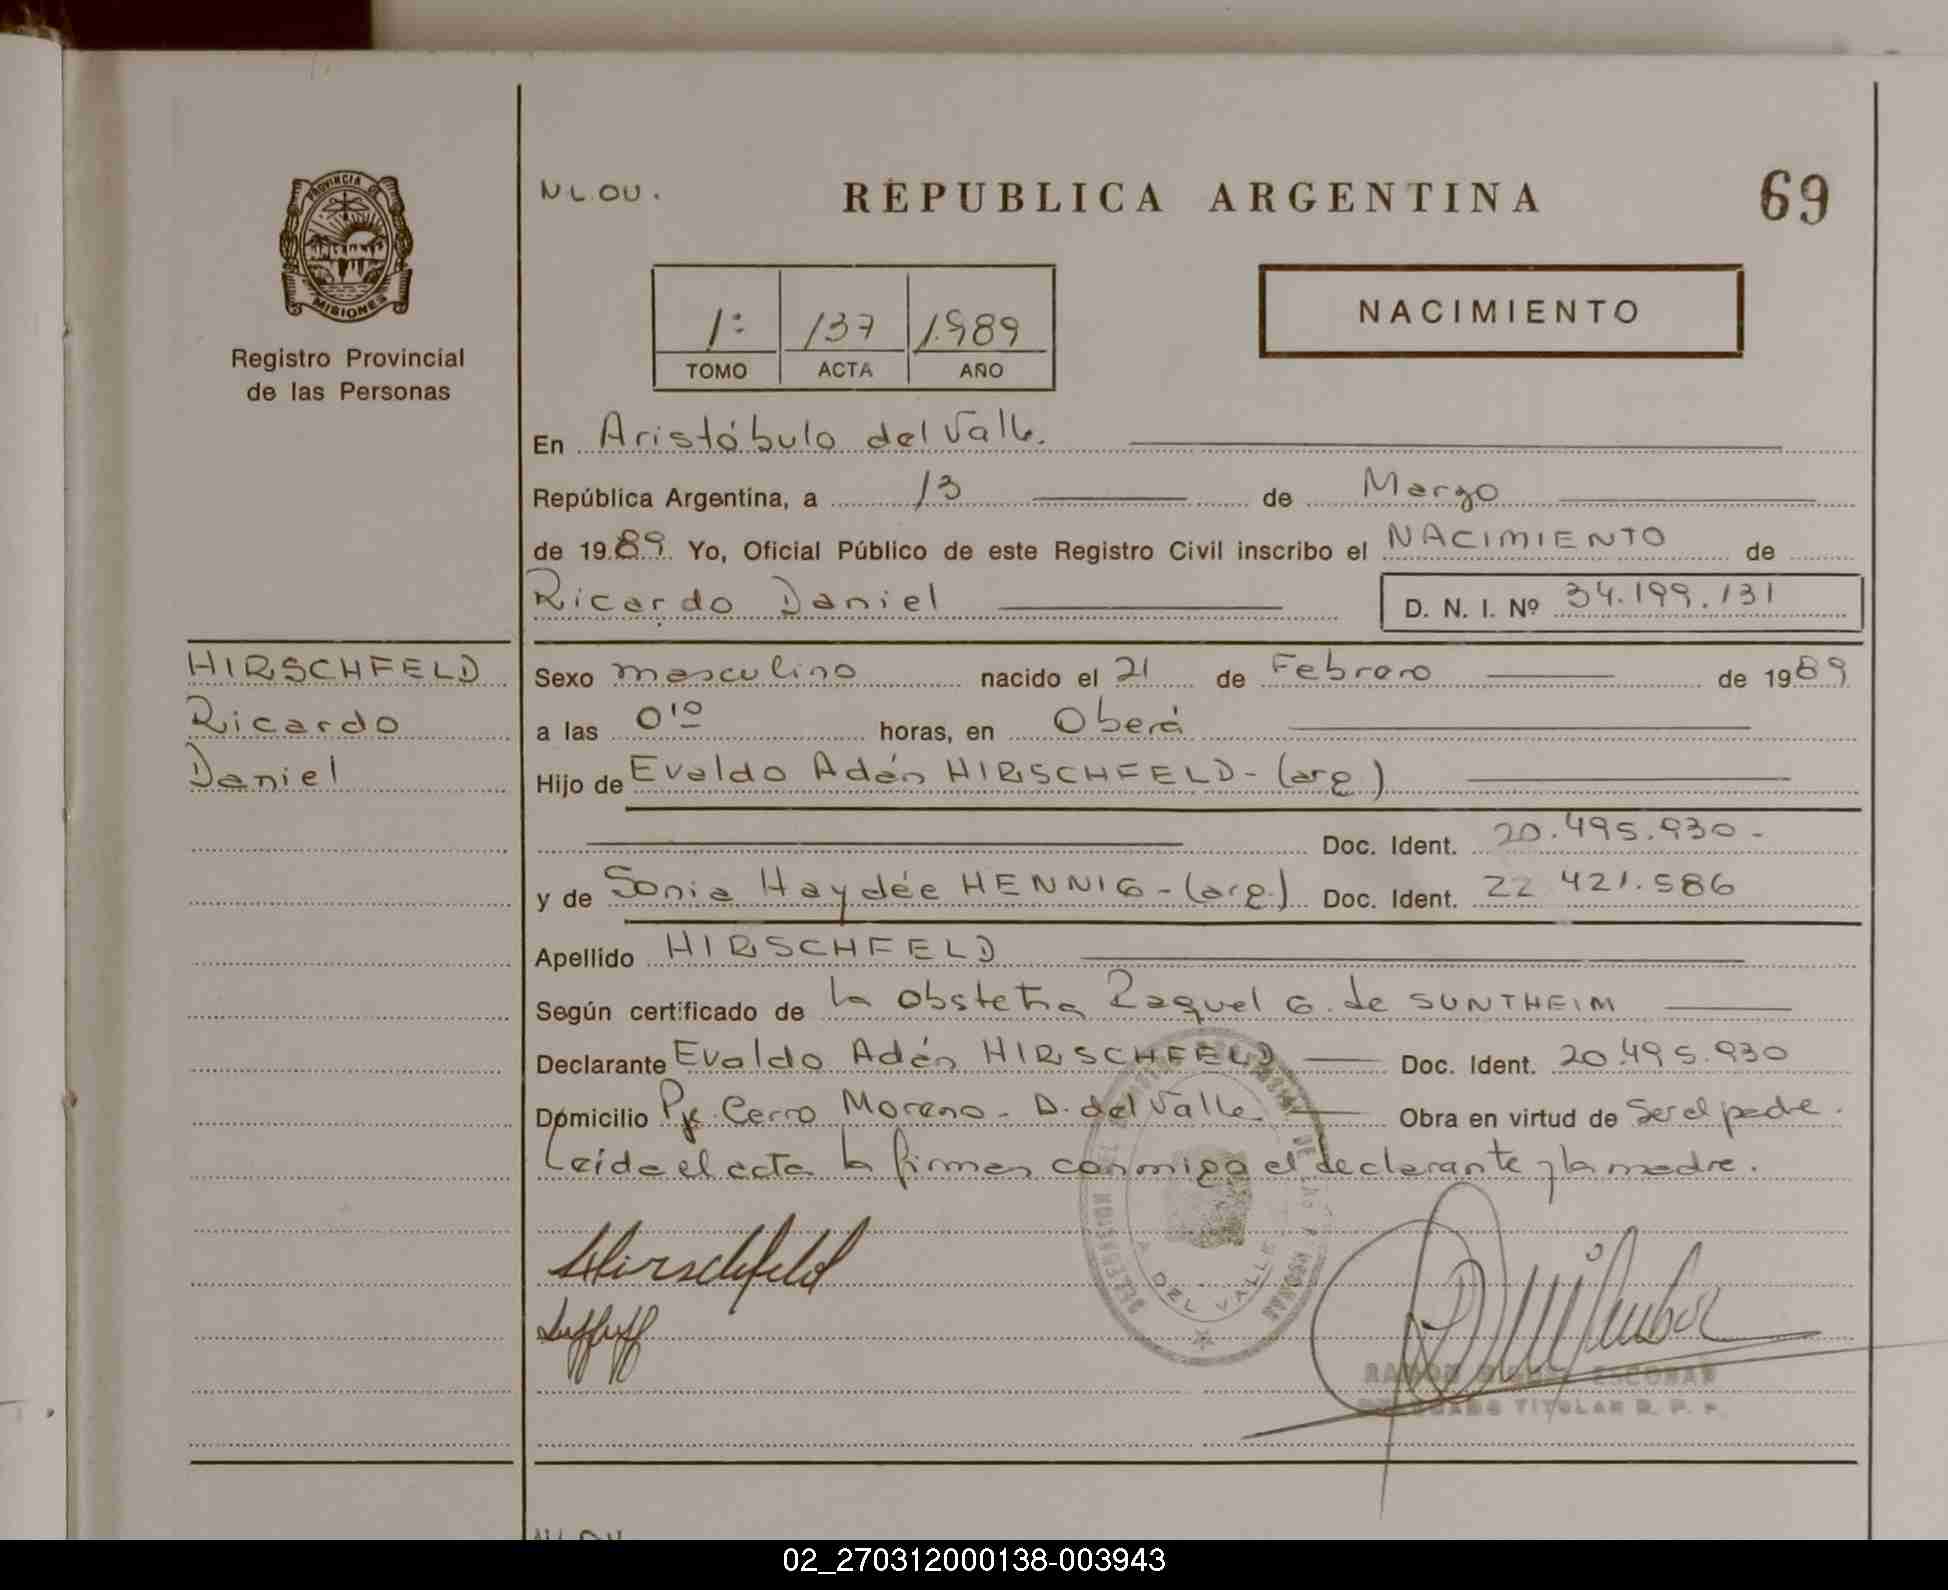 PROVINCIA DE
MISIONES
Registro Provincial
de las Personas
N L. OU.
REPUBLICA ARGENTINA
69
1º 137 1.989
TOMO ACTA AÑO
NACIMIENTO
En Aristóbulo del Valle.
República Argentina, a 13 de Marzo
de 1989 Yo, Oficial Público de este Registro Civil inscribo el NACIMIENTO de
Ricardo Daniel D. N. I. Nº 34.199.131
HIRSCHFELD
Ricardo
Daniel
Sexo masculino nacido el 21 de Febrero de 1989
a las 0:10 horas, en Oberá
Hijo de Evaldo Adán HIRSCHFELD - (arg.)
Doc. Ident. 20.495.930-
y de Sonia Haydée HENNIG - (arg.) Doc. Ident. 22 421.586
Apellido HIRSCHFELD
Según certificado de la obstetra Raquel G. de SUNTHEIM
Declarante Evaldo Adán HIRSCHFELD Doc. Ident. 20.495.930
Domicilio Pje. Cerro Moreno - D. del Valle. Obra en virtud de Ser el padre.
Leída el acta la firman conmigo el declarante y la madre.
Hirschfeld
DEL VALLE
ESCOBAR
TITULAR R. P. P.
02_270312000138-003943